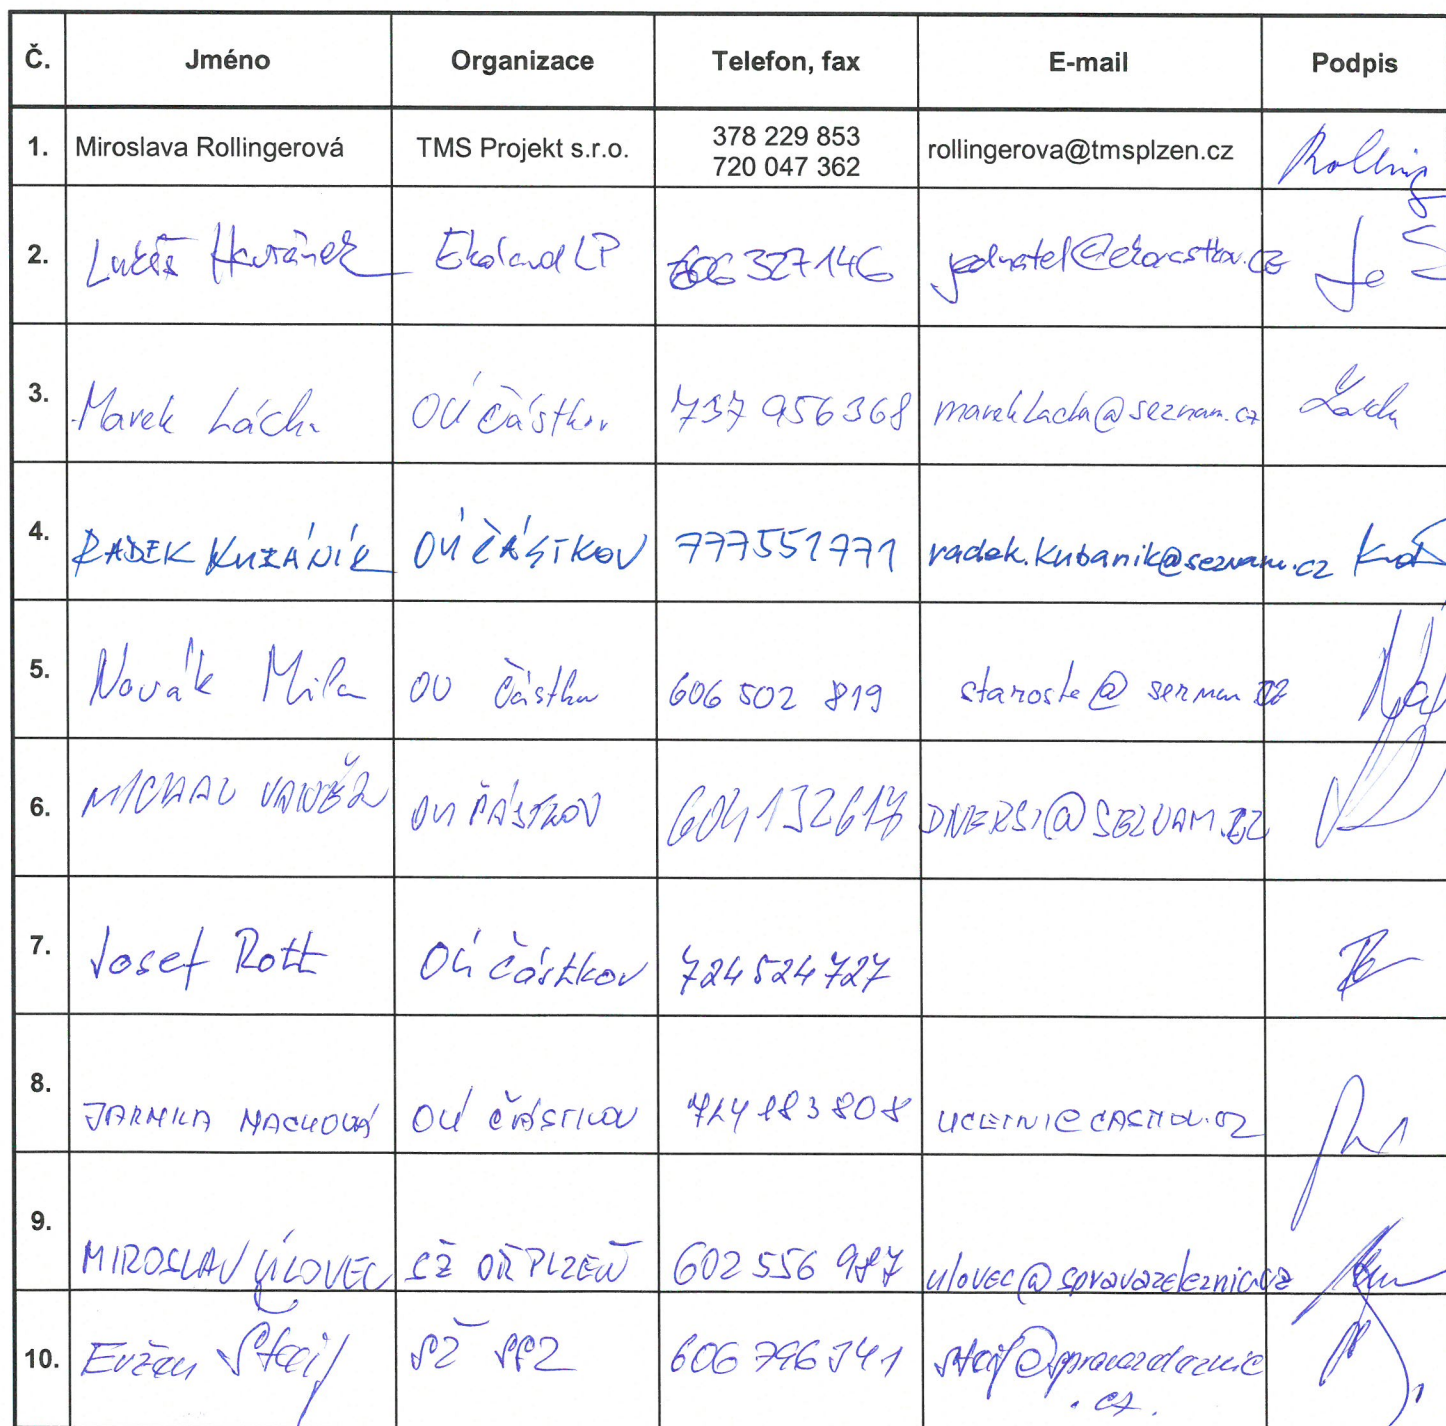 Č. Jméno Organizace Telefon, fax E-mail Podpis
1. Miroslava Rollingerová TMS Projekt s.r.o. 378 229 853 rollingerova@tmsplzen.cz Rolling
720 047 362
2. Lukáš Havránek Ekoland LP 606 327146
3. Marek Lácha OÚ Částkov 737 956368 marek.lacha@seznam.cz Lácha
4. RADEK KUBÁNIK OÚ ČÁSTKOV 777551771 radek.kubanik@seznam.cz
5. Novák Mila OÚ Částkov 606 502 819
6. MICHAL VANĚK OÚ ČÁSTKOV
7. Josef Rott OÚ Částkov 724 524 727
8. JARMILA MACHOVÁ OÚ ČÁSTKOV 724 183 808 UCETNI@CASTKOV.CZ
9. MIROSLAV ÚLOVEC SŽ OŘ PLZEŇ 602 556 987 ulovec@spravazeleznic.cz
10. Evžen Staif SŽ 606 796 341 staif@spravazeleznic
.cz.